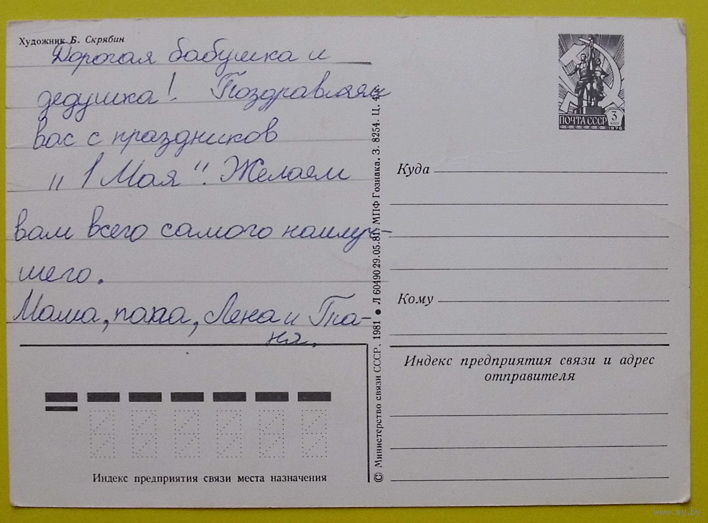 Художник Б. Скрябин
Дорогая бабушка и
дедушка! Поздравляем
вас с праздников
„1 Мая". Желаем
вам всего самого наилу-
шего.
Мама, папа, Лена и Та-
ня.
Индекс предприятия связи места назначения
© Министерство связи СССР, 1981 ● Л 60490 29.05.81. МПФ Гознака. З. 8254. Ц. 4 к.
ПОЧТА СССР 3
1976
Куда
Кому
Индекс предприятия связи и адрес
отправителя